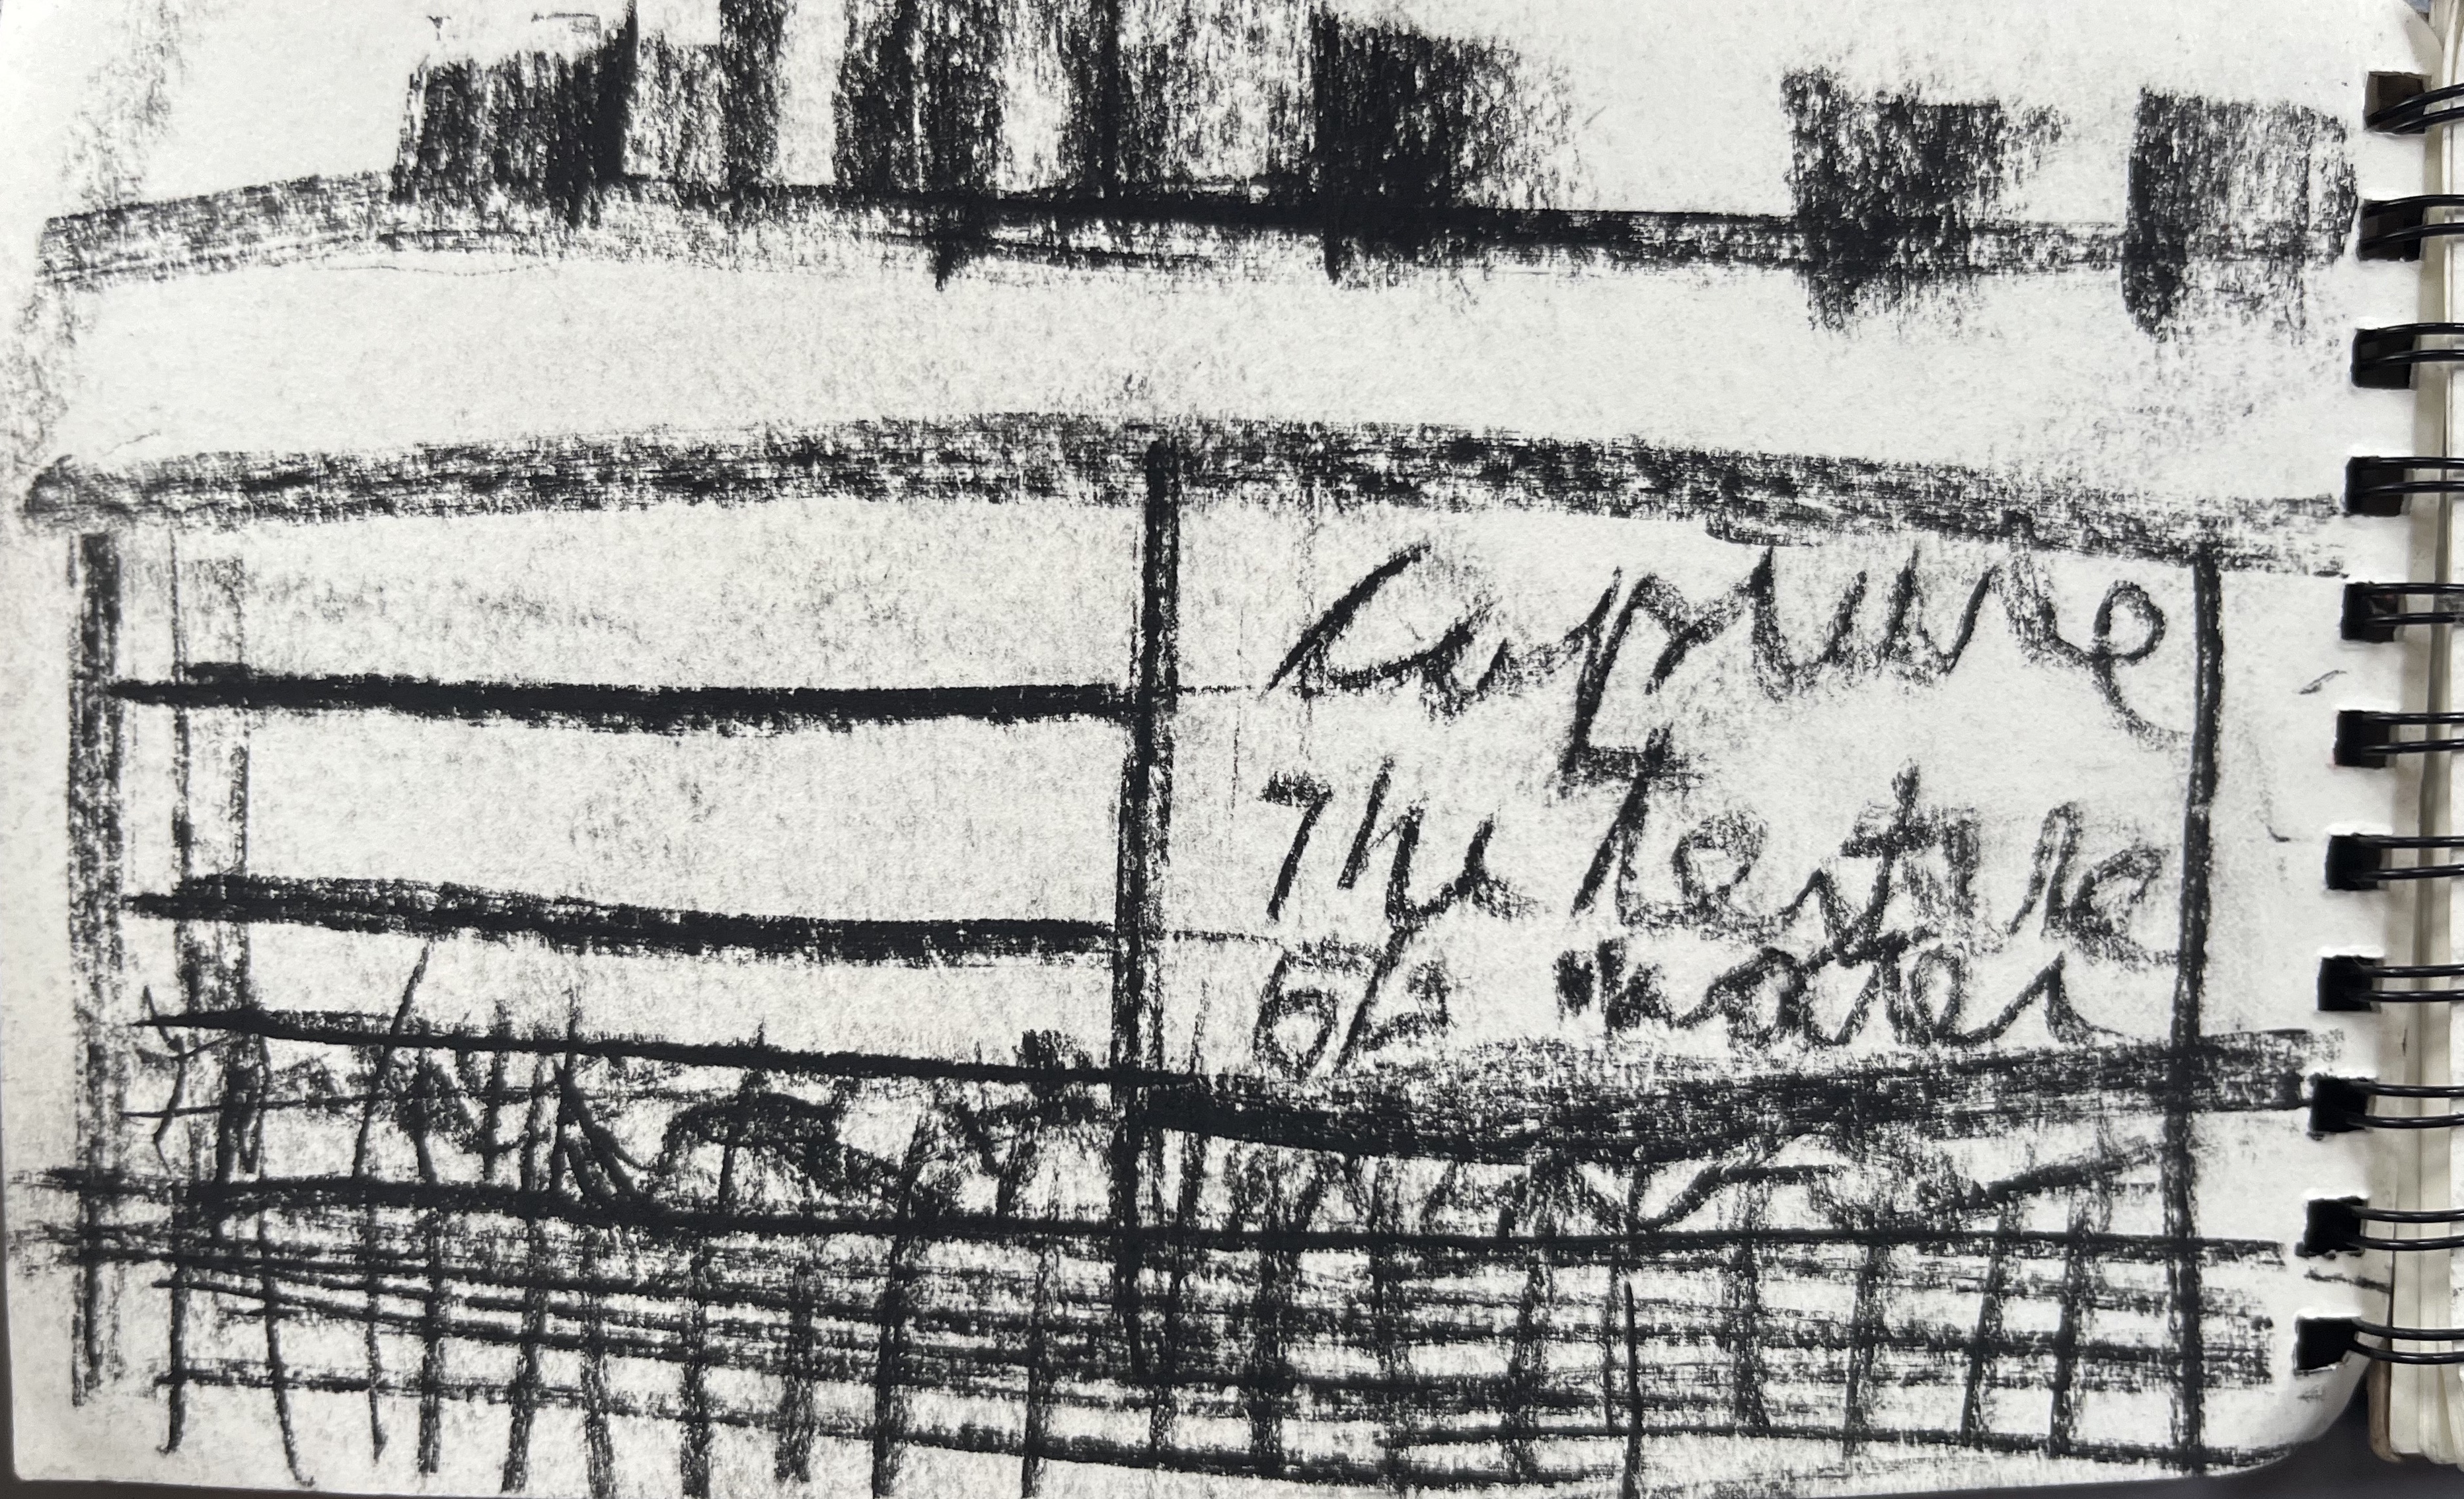 Capture
The texture
of water